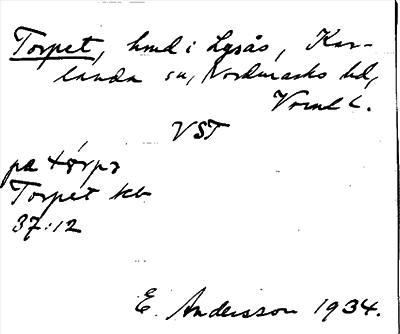 Torpet, hmd i Lysås, Kar-
landa sn, Nordmarks hd,
Vrml l.
VST
pa tǫrpə
Torpet kb
37:12
E. Andersson 1934.